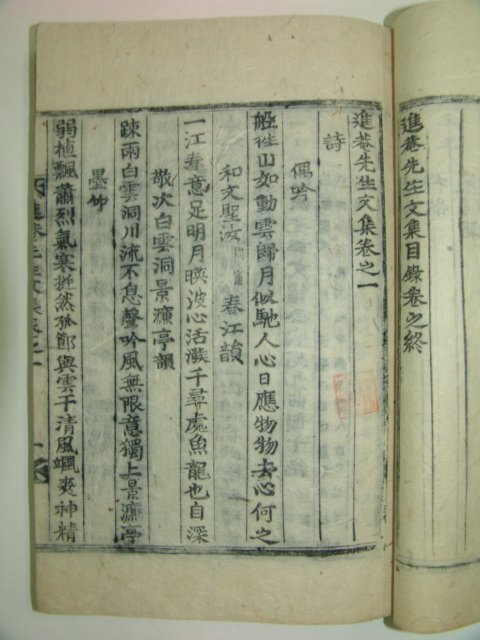 進菴先生文集目錄卷之終
進菴先生文集卷之一
詩
偶吟
船徃山如動雲歸月似馳人心日應物物去心何之
和文聖汝周 春江韻
一江春意足明月暎波心活潑千尋處魚龍也自深
敬次白雲洞景濂亭韻
踈雨白雲洞川流不息聲吟風無限意獨上景濂亭
墨竹
弱植飄蕭烈氣寒挺然孤節與雲干清風颯爽神精
進菴先生文集卷之一
一